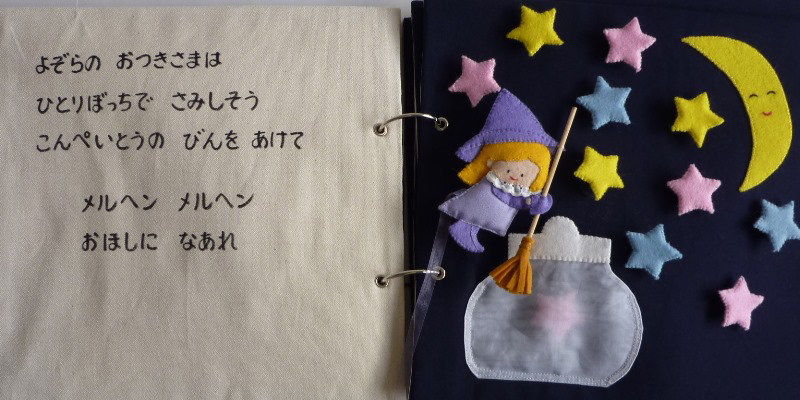 よぞらの おつきさまは
ひとりぼっちで さみしそう
こんぺいとうの びんを あけて
メルヘン メルヘン
おほしに なあれ